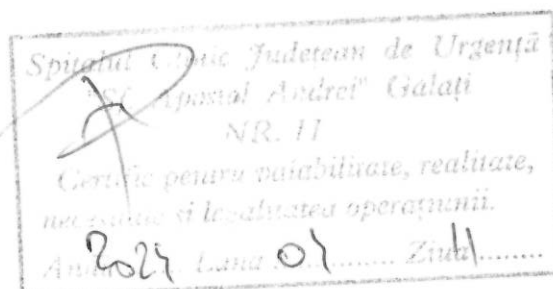 Spitalul Clinic Județean de Urgență
"Sf. Apostol Andrei" Galați
NR. 11
Certific pentru valabilitate, realitate,
și legalitatea operațiunii.
Anul 2024 Luna 04 Ziua 11